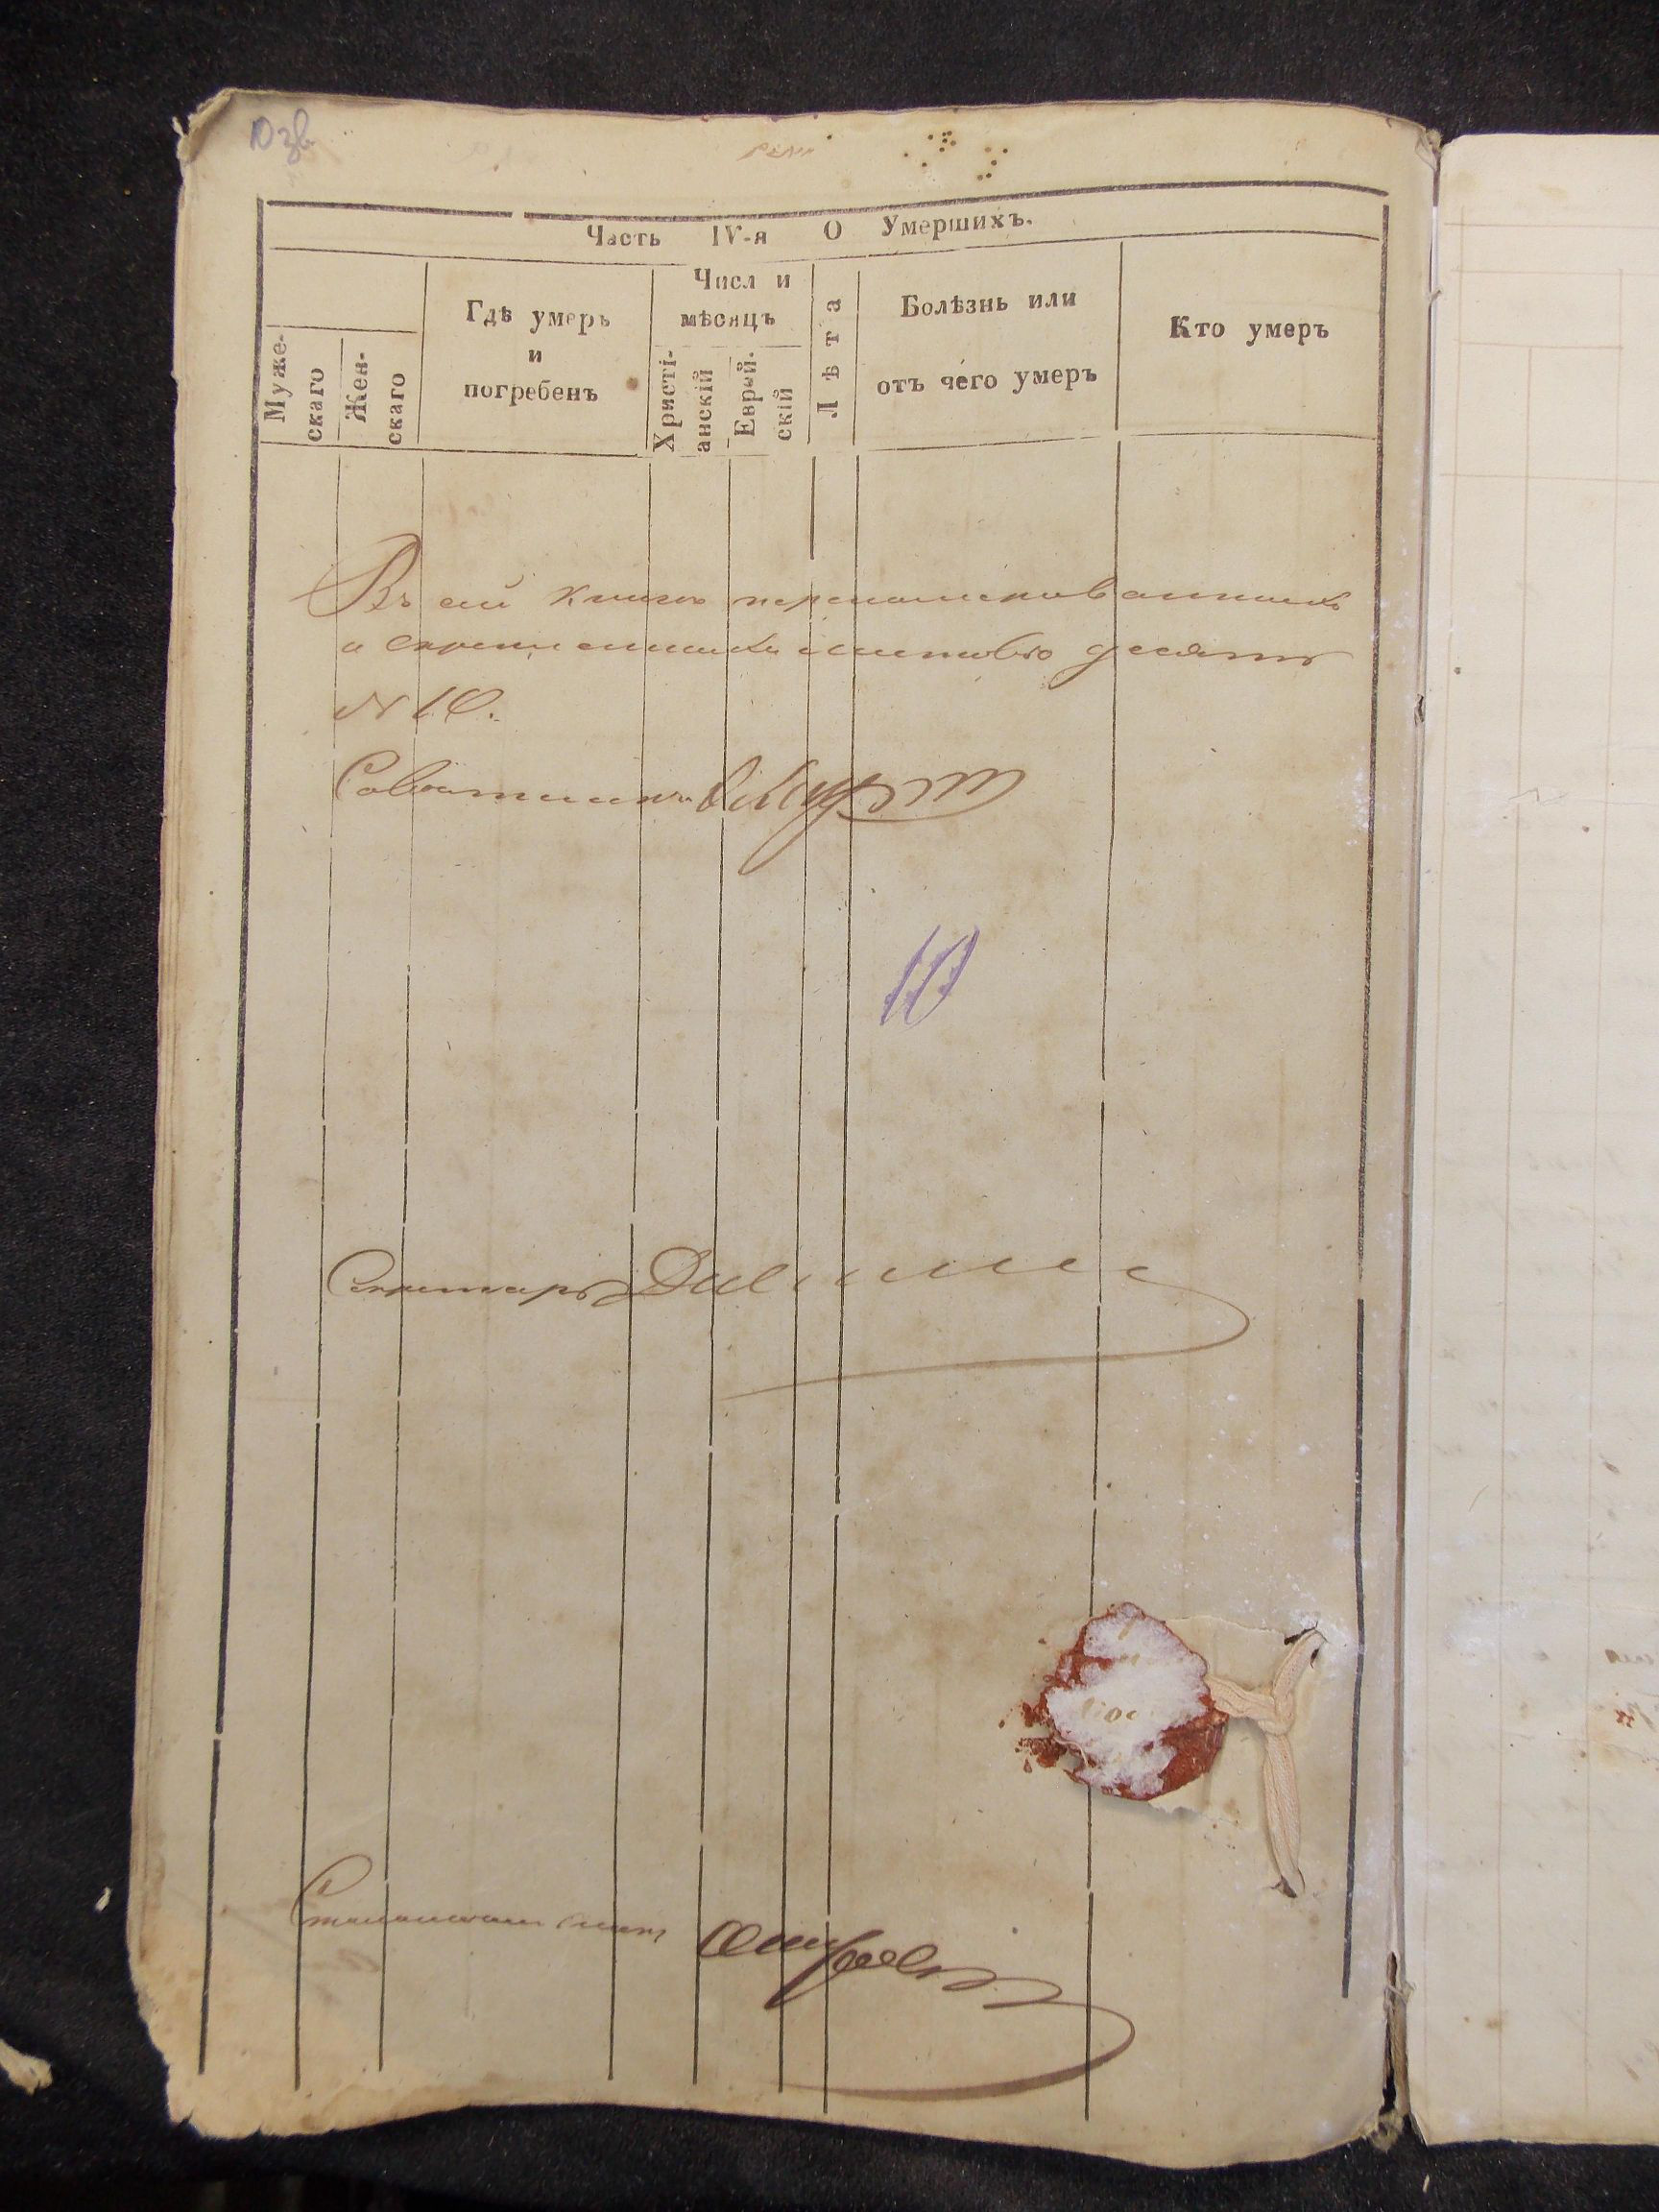 10 зв
Часть IV-я О Умершихъ.
Муже-
скаго
Жен-
скаго
Гдѣ умеръ
и
погребенъ
Числ и
мѣсяцъ
Христі-
анскій
Еврей-
скій
Лѣта
Болѣзнь или
отъ чего умеръ
Кто умеръ
Въ сей книгѣ перенумерованныхъ
и скрепленныхъ листовъ десять
№ 10.
Советникъ
10
Секретарь
Столоначальникъ